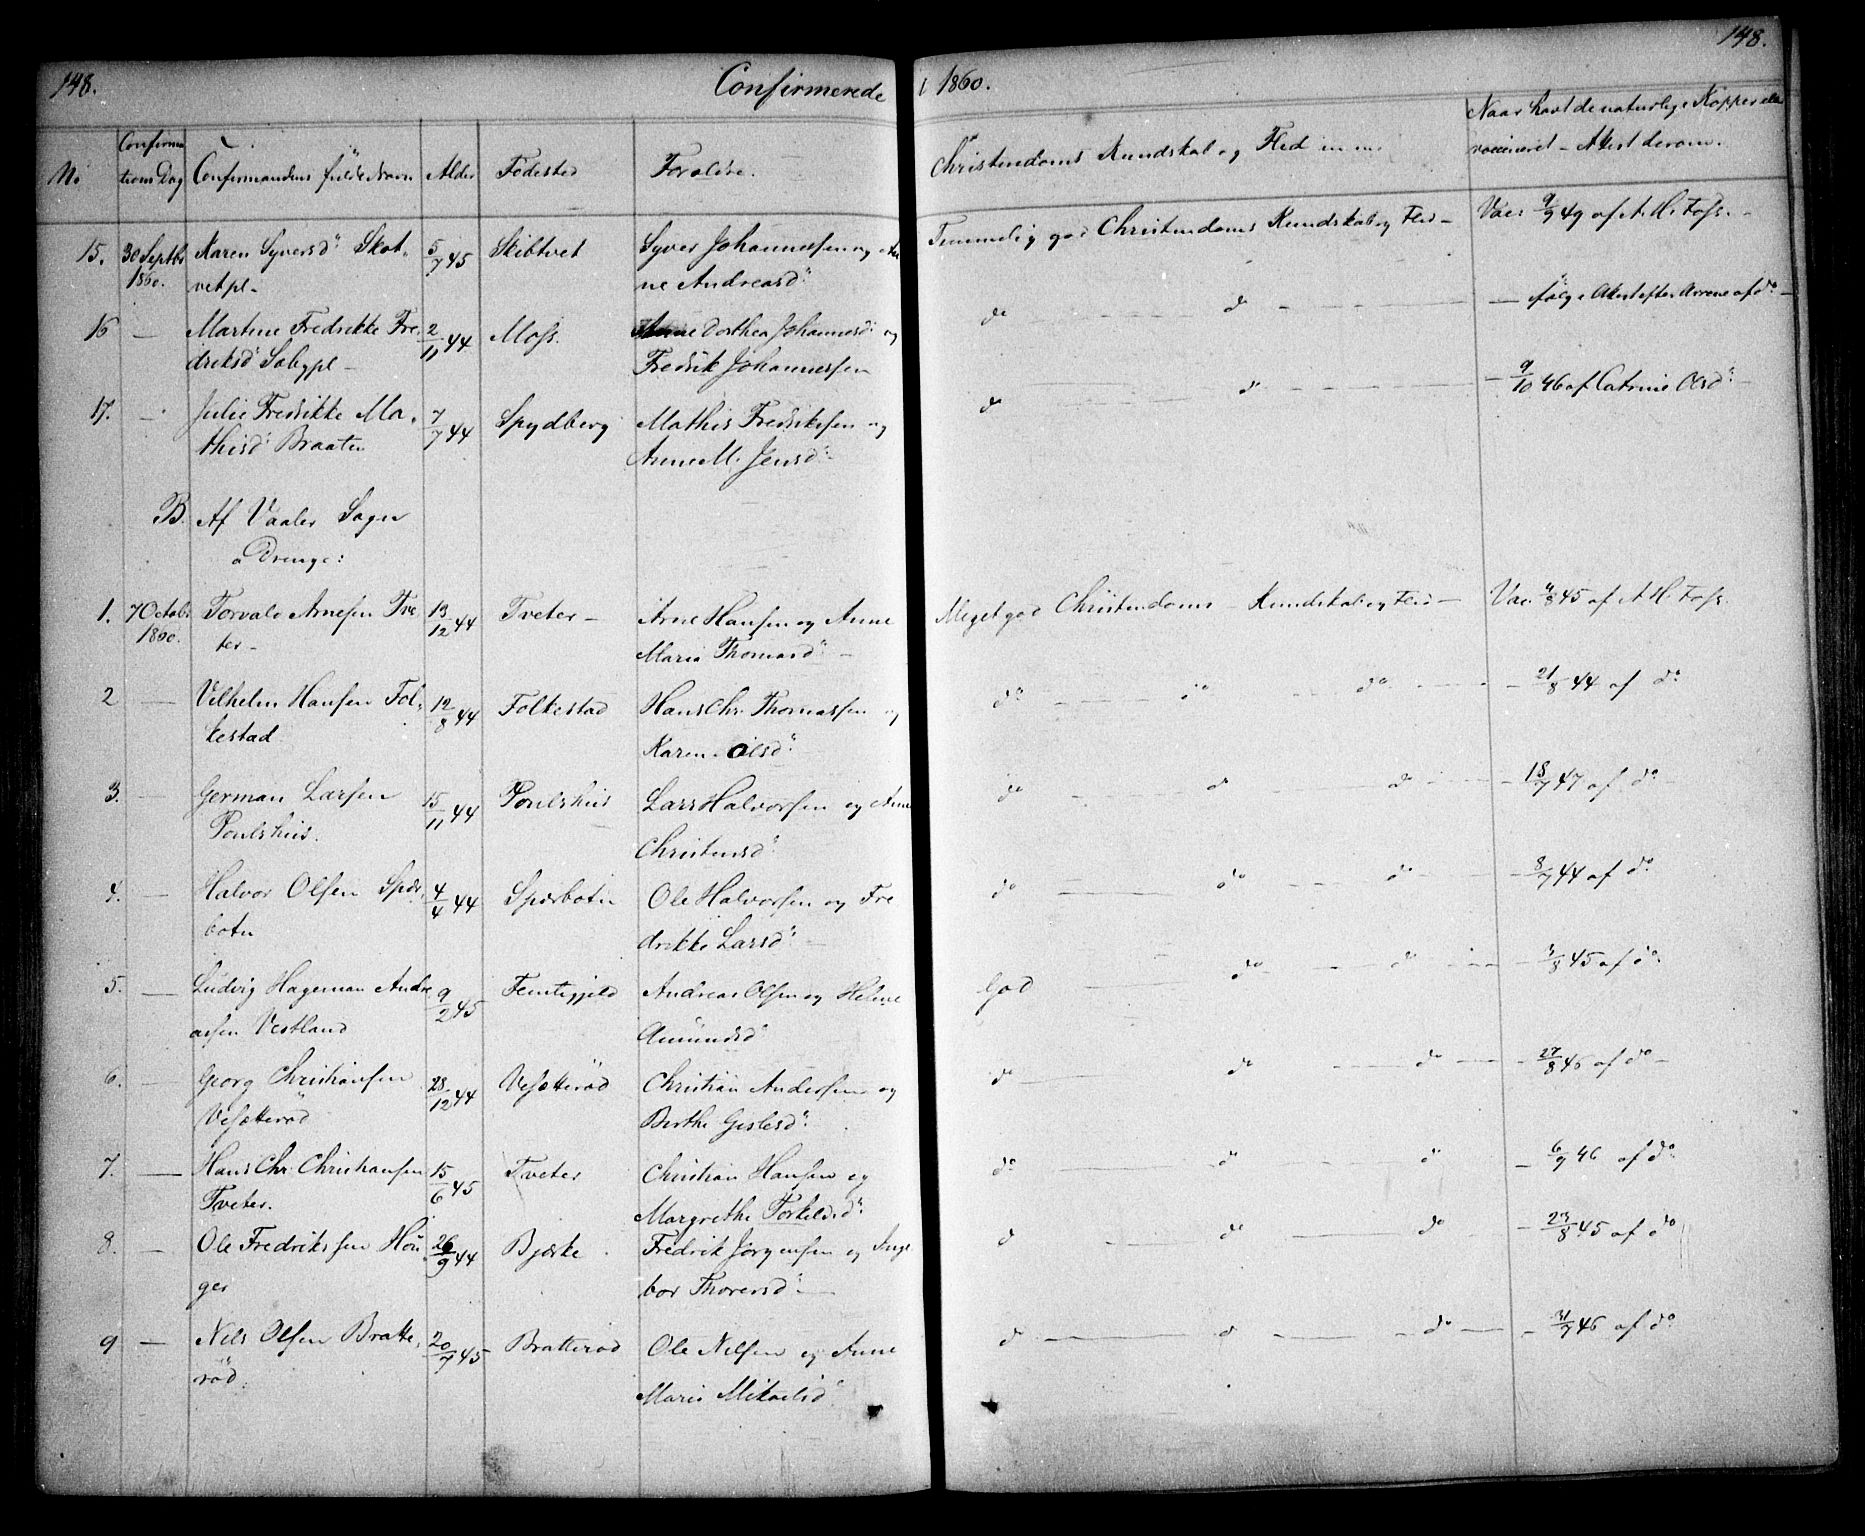 148.
Confirmerede i 1860.
148.
No
Confirmations Dag
Confirmandens fulde Navn
Alder
Fødested
Forældre.
Christendoms Kundskab og Flid
Naar havt de naturlige Kopper eller
vaccineret – Attest derom.
15. 30 Septbr 1860. Karen Syversd: Skot- 5/7 45 Skibtvet Syver Johannesen og An- Temmelig god Christendoms Kundskab og Flid – Vac: 9/9 49 af A. H. Foss. –
vetpl – ne Andreasd:
16 — Martine Fredrikke Fre- 2/11 44 Moss. Dorthea Johannesd: og do — do — — ifølge Attest efter Arrene af do –
driksd: Sabypl – Fredrik Johannessen
17. — Julie Fredrikke Ma- 7/7 44 Spydberg Mathis Fredriksen og do — do — 9/10 46 af Catrine Olsd: –
thisd: Braaten Anne M. Jensd:
B. Af Vaaler Sogn
a Drenge:
1. 7 Octob: 1860. Torvald Arnesen Tve- 13/12 44 Tveter – Arne Hansen og Anne Meget god Christendoms Kundskab og Flid – Vac: 4/8 45 af A. H. Foss.
ter – Maria Thomasd: –
2 — Vilhelm Hansen Fol- 12/8 44 Folkestad Hans Chr. Thomassen og do — do — do — 21/8 44 af do
kestad Karen Olsd:
3. — German Larsen 15/11 44 Poulshus Lars Halvorsen og Anne do — do — do — 18/7 47 af do –
Poulshus. Christensd:
4. — Halvor Olsen Spær- 4/4 44 Spærbotn Ole Halvorsen og Fre- do — do — do — 8/7 44 af do
botn drikke Larsd: –
5. — Ludvig Hagerman Andre- 9/2 45 Andreas Olsen og Helene God — do — do — 3/8 45 af do
asen Vestland Amundsd:
6. — Georg Christiansen 28/12 44 Vesætterød Christian Andersen og do — do — do — 27/8 46 af do –
Vesætterød Berthe Gislesd:
7. — Hans Chr: Christiansen 15/6 45 Tveter Christian Hansen og do — do — do — 6/9 46 af do
Tveter. Margrethe Torkelsd:
8. — Ole Fredrikssen Hou- 26/9 44 Bjerke Fredrik Jørgensen og Inge- do — do — do — 23/8 45 af do
ger bor Thorersd: –
9 — Nils Olsen Bratte- 20/7 45 Bratterød Ole Nilsen og Anne do — do — do — 46 af do
rød Marie Mikaelsd: